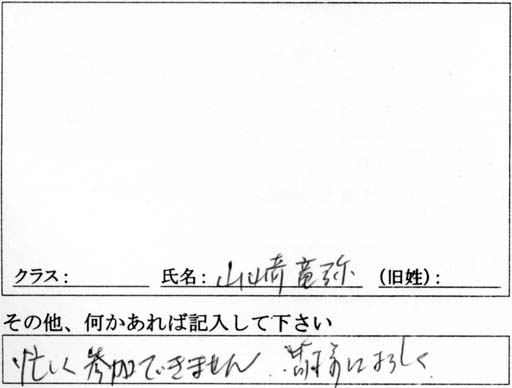 クラス: 氏名: 山崎竜弥 (旧姓):
その他、何かあれば記入して下さい
忙しく参加できません 皆様によろしく